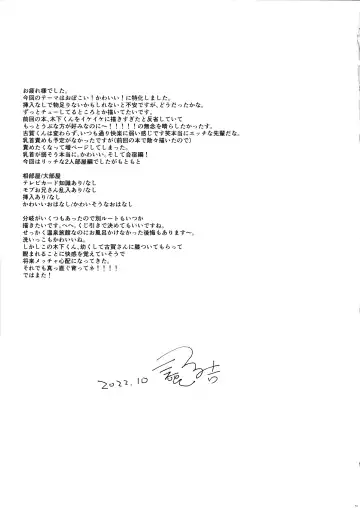 お疲れ様でした。
今回のテーマはおぼこい!かわいい!に特化しました。
挿入なしで物足りないかもしれないと不安ですが、どうだったかな。
ずっとチューしてるところとか描いてたいです。
前回の本、木下くんをイケイケに描きすぎたと反省していて
もっとうぶな方が好みなのに〜!!!!!の無念を晴らしたかった。
古賀くんは変わらず、いつも通り快楽に弱い感じです笑本当にエッチな先輩だな。
乳首責めも予定がなかったですが(前回の本で散々描いたので)
責めたくなって増ページしてしまった。
乳首が弱そう本当に、かわいい。そして合宿編!
今回はリッチな2人部屋編でしたがもともと
相部屋/大部屋
テレビカード知識あり/なし
モブお兄さん乱入あり/なし
挿入あり/なし
かわいいおはなし/かわいそうなおはなし
分岐がいくつもあったので別ルートもいつか
描きたいです、へへ。くじ引きで決めてもいいですね。
せっかく温泉旅館なのにお風呂かけなかった後悔もありますー。
洗いっこもかわいいね。
しかしこの木下くん、幼くして古賀さんに勝ついてもらって
蔑まれることに快感を覚えていそうで
将来メッチャ心配になってきた。
それでも真っ直ぐ育ってネ!!!!
ではまた!
2022.10